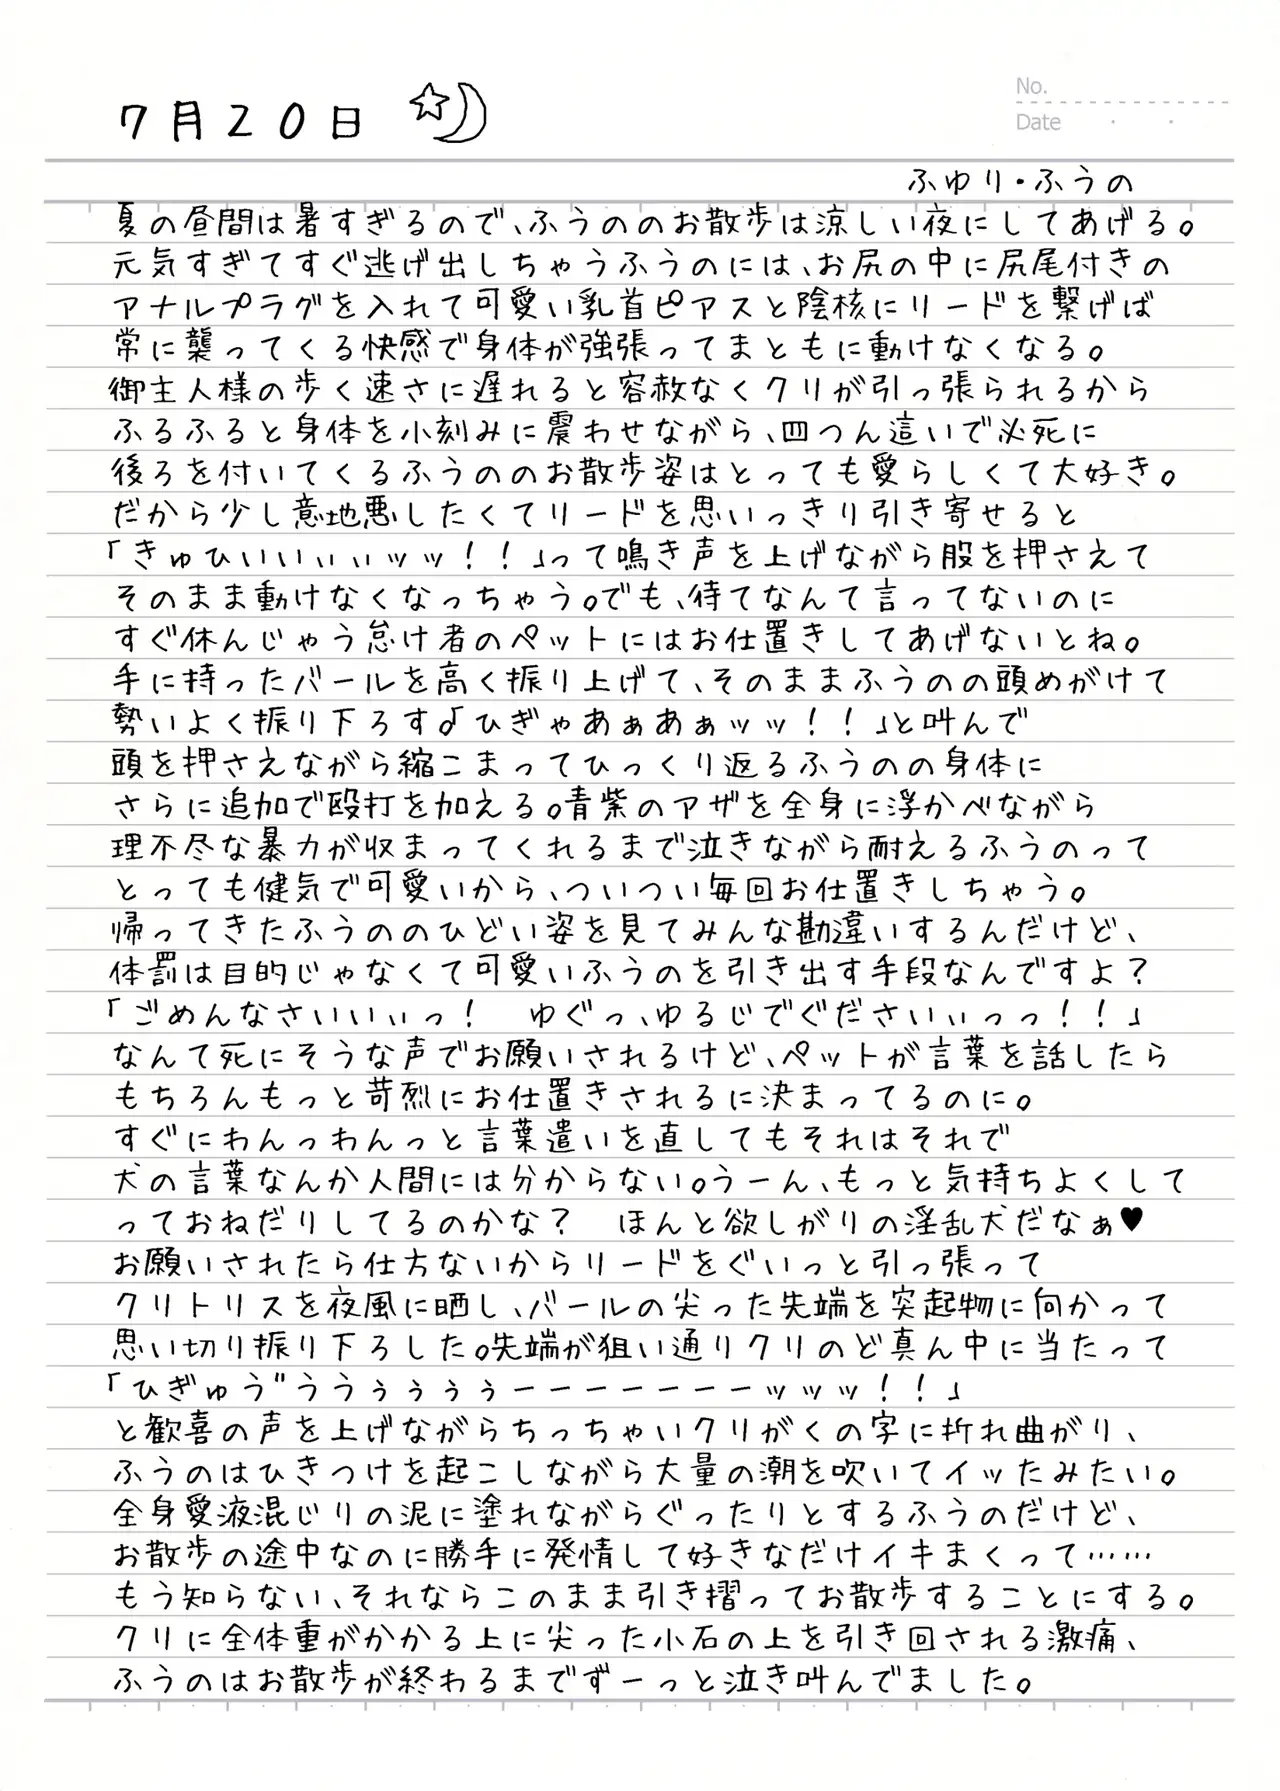 7月20日
No.
Date
ふゆり・ふうの
夏の昼間は暑すぎるので、ふうののお散歩は涼しい夜にしてあげる。
元気すぎてすぐ逃げ出しちゃうふうのには、お尻の中に尻尾付きの
アナルプラグを入れて可愛い乳首ピアスと陰核にリードを繋げば
常に襲ってくる快感で身体が強張ってまともに動けなくなる。
御主人様の歩く速さに遅れると容赦なくクリが引っ張られるから
ふるふると身体を小刻みに震わせながら、四つん這いで必死に
後ろを付いてくるふうののお散歩姿はとっても愛らしくて大好き。
だから少し意地悪したくてリードを思いっきり引き寄せると
「きゅひいいぃぃぃッッ!!」って鳴き声を上げながら股を押さえて
そのまま動けなくなっちゃう。でも、待てなんて言ってないのに
すぐ休んじゃう怠け者のペットにはお仕置きしてあげないとね。
手に持ったバールを高く振り上げて、そのままふうのの頭めがけて
勢いよく振り下ろす。「ひぎゃあぁあぁッッ!!」と叫んで
頭を押さえながら縮こまってひっくり返るふうのの身体に
さらに追加で殴打を加える。青紫のアザを全身に浮かべながら
理不尽な暴力が収まってくれるまで泣きながら耐えるふうのって
とっても健気で可愛いから、ついつい毎回お仕置きしちゃう。
帰ってきたふうののひどい姿を見てみんな勘違いするんだけど、
体罰は目的じゃなくて可愛いふうのを引き出す手段なんですよ?
「ごめんなさいいぃぃっ!　ゆぐっ、ゆるじでぐださいぃぃっっ!!」
なんて死にそうな声でお願いされるけど、ペットが言葉を話したら
もちろんもっと苛烈にお仕置きされるに決まってるのに。
すぐにわんっわんっと言葉遣いを直してもそれはそれで
犬の言葉なんか人間には分からない。うーん、もっと気持ちよくして
っておねだりしてるのかな?　ほんと欲しがりの淫乱犬だなぁ♥
お願いされたら仕方ないからリードをぐいっと引っ張って
クリトリスを夜風に晒し、バールの尖った先端を突起物に向かって
思い切り振り下ろした。先端が狙い通りクリのど真ん中に当たって
「ひぎゅう゛ううぅぅぅぅーーーーーーーッッッ!!」
と歓喜の声を上げながらちっちゃいクリがくの字に折れ曲がり、
ふうのはひきつけを起こしながら大量の潮を吹いてイッたみたい。
全身愛液混じりの泥に塗れながらぐったりとするふうのだけど、
お散歩の途中なのに勝手に発情して好きなだけイキまくって……
もう知らない、それならこのまま引き摺ってお散歩することにする。
クリに全体重がかかる上に尖った小石の上を引き回される激痛、
ふうのはお散歩が終わるまでずーっと泣き叫んでました。